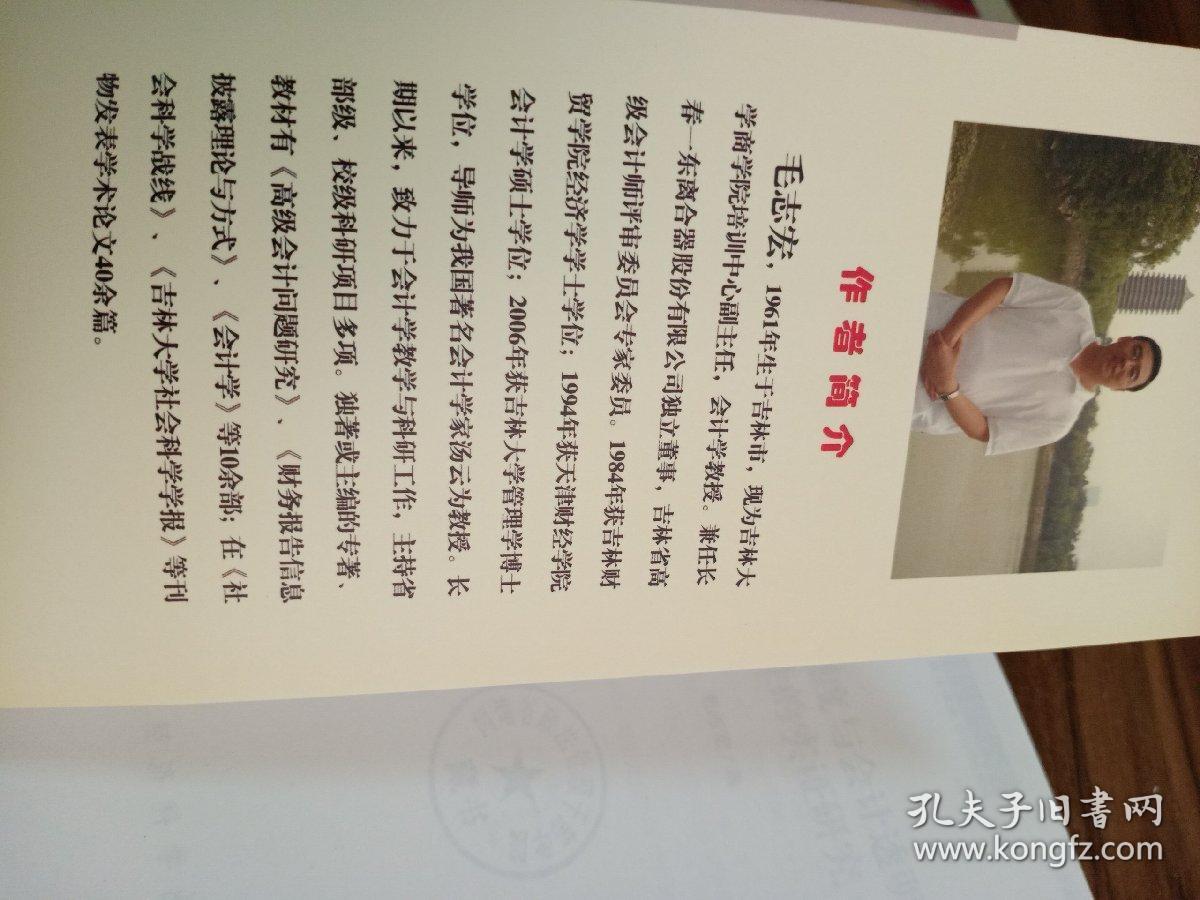 作者简介
毛志宏，1961年生于吉林市，现为吉林大
学商学院培训中心副主任，会计学教授。兼任长
春一东离合器股份有限公司独立董事，吉林省高
级会计师评审委员会专家委员。1984年获吉林财
贸学院经济学学士学位；1994年获天津财经学院
会计学硕士学位；2006年获吉林大学管理学博士
学位，导师为我国著名会计学家汤云为教授。长
期以来，致力于会计学教学与科研工作，主持省
部级、校级科研项目多项。独著或主编的专著、
教材有《高级会计问题研究》、《财务报告信息
披露理论与方式》、《会计学》等10余部；在《社
会科学战线》、《吉林大学社会科学学报》等刊
物发表学术论文40余篇。
孔夫子旧书网
www.kongfz.com